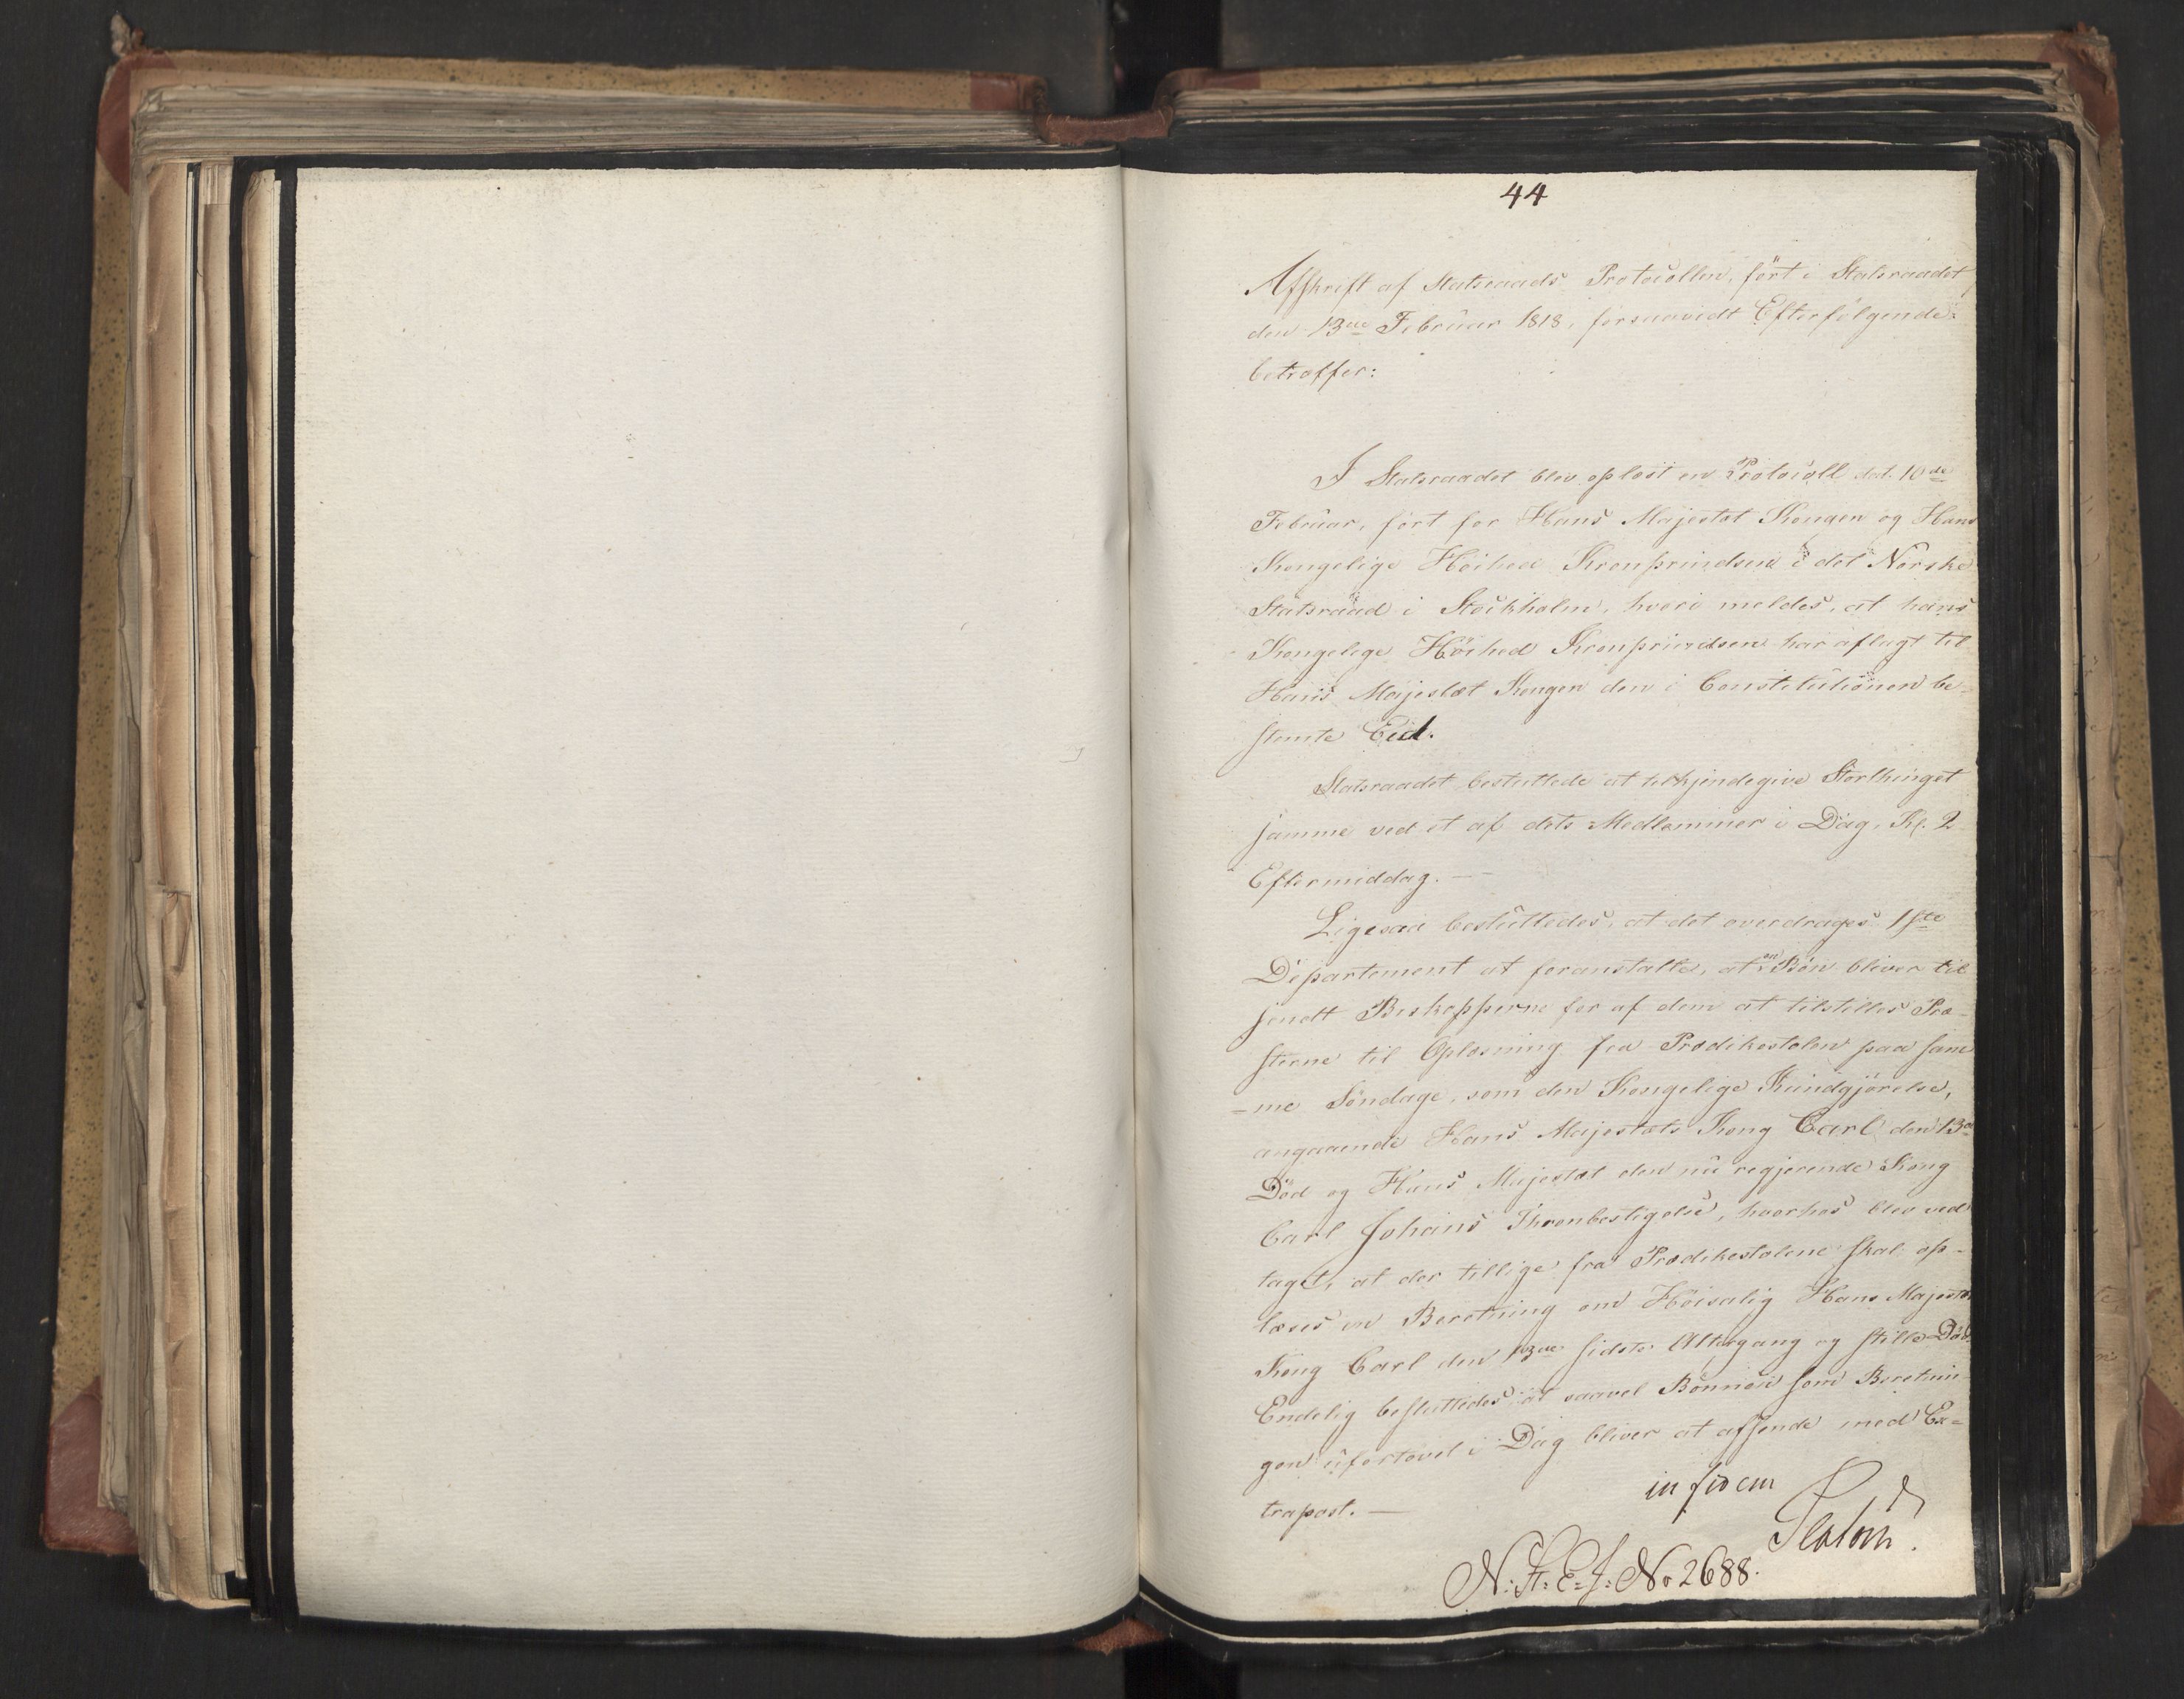 44
Afskrift af Statsraads Protocollen, ført i Statsraadet
den 13de Februar 1818, forsaavidt Efterfølgende
betræffer:
I Statsraadet blev oplæst en Protocoll dat. 10de
Februar, ført for Hans Majestæt Kongen og Hans
Kongelige Høihed Kronprindsen i det Norske
Statsraad i Stockholm, hvori meldes, at hans
Kongelige Høihed Kronprindsen har aflagt til
Hans Majestæt Kongen den i Constitutionen be-
stemte Eed.
Statsraadet besluttede at tilkjendegive Storthinget
samme ved et af dets Medlemmer i Dag, Kl. 2
Eftermiddag. —
Ligesaa besluttedes, at det overdrages 1ste
Departement at foranstalte, at en Bøn bliver til-
sendt Biskopperne for af dem at tilstilles Præ-
sterne til Oplæsning fra Prædikestolen paa sam
-me Søndage, som den Kongelige Kundgjørelse,
angaaende Hans Majestæts Kong Carl den 13de
Død og Hans Majestæt den nu regjerende Kong
Carl Johans Thronbestigelse, hvorhos blev ved
taget, at der tillige fra Prædikestolene skal op-
læses en Beretning om Høisalig Hans Majestæt
Kong Carl den 13de sidste Altergang og stille Død.
Endelig besluttedes at saavel Bønnen som Beretnin
gen ufortøvet i Dag bliver at afsende med Ex=
trapost. —
in fidem
Platou.
N: St: E: J: No 2688.